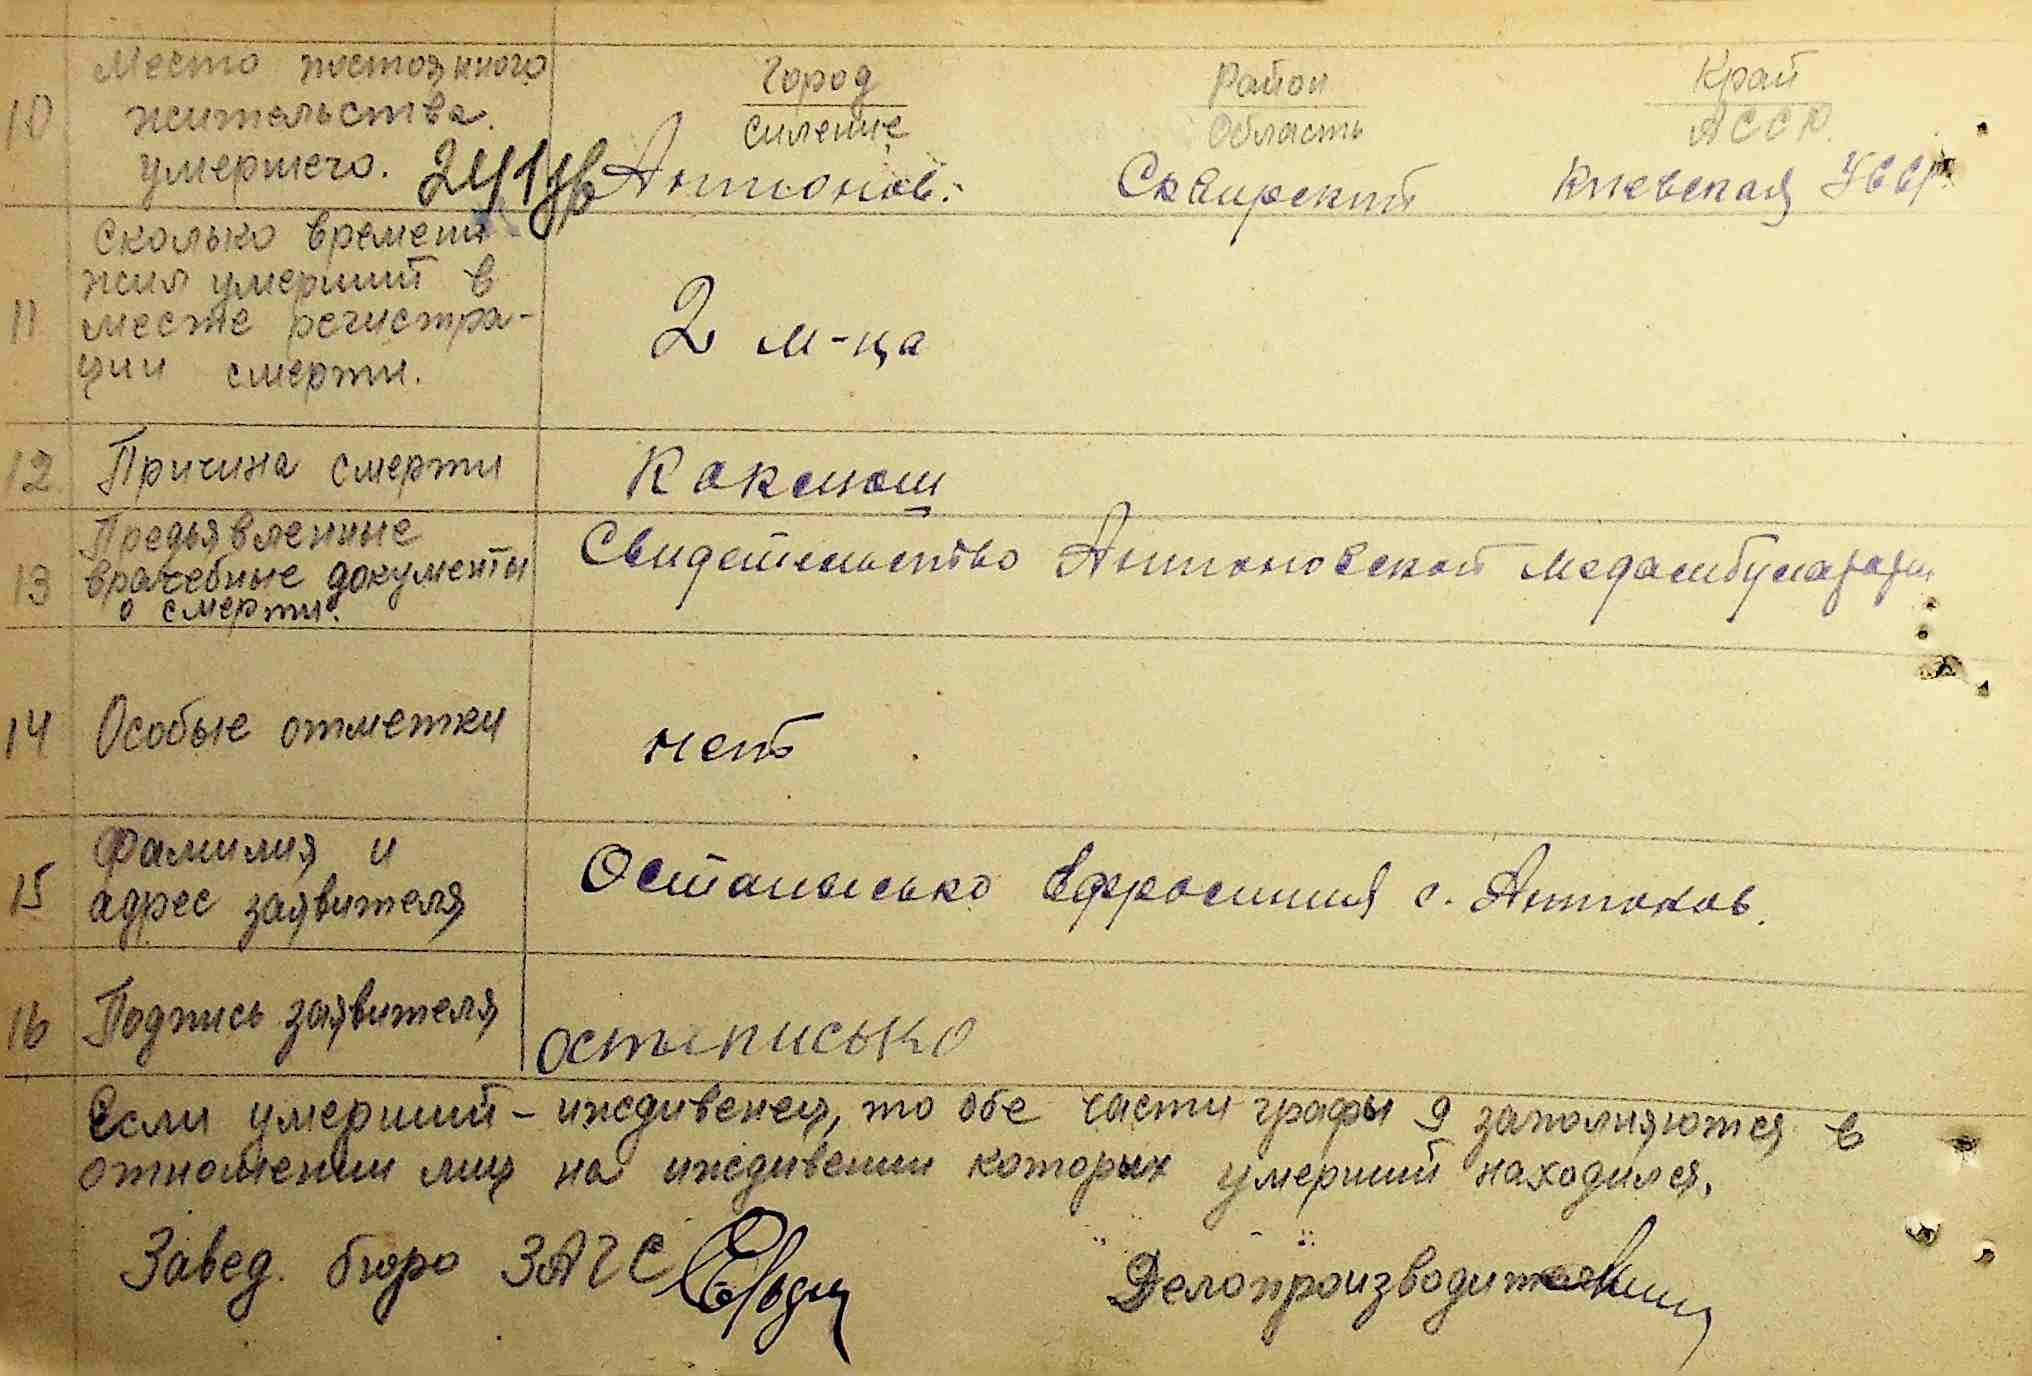 10 Место постоянного жительства умершего.
Город Район Край
Силение Область АССР.
Антонов. Сквирский Киевская
11 Сколько времени
жил умерший в
месте регистра-
ции смерти.
2 м-ца
12 Причина смерти
13 Предъявленные
врачебные документы
о смерти.
Свидетельство Антоновской медамбулатории
14 Особые отметки
нет
15 Фамилия и
адрес заявителя
Ефросиния с. Антонов.
16 Подпись заявителя
Если умерший - иждивенец, то обе части графы 9 заполняются в
отношении лиц на иждивении которых умерший находился.
Завед. бюро ЗАГС Делопроизводитель